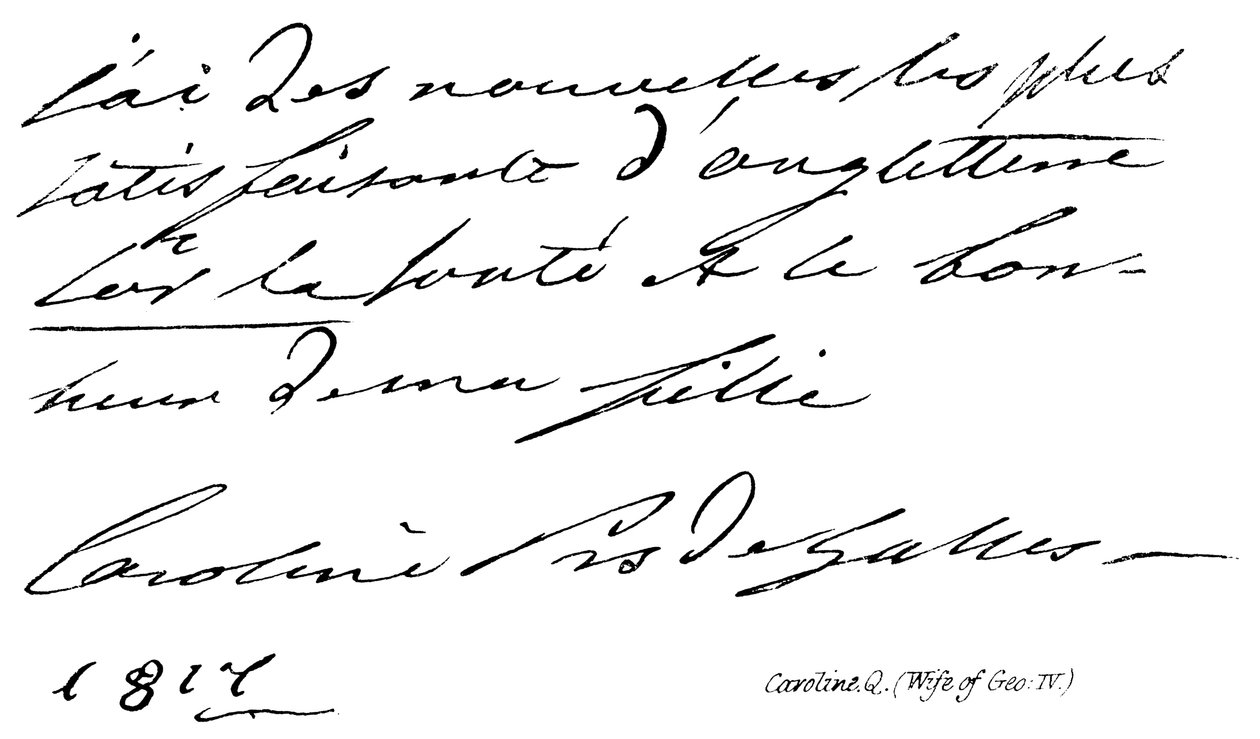 j'ai des nouvelles les plus
satisfaisante d'angletterre
la santé et le bon-
heur de ma fille
Caroline Prs de galles —
1817
Caroline.Q. (Wife of Geo: IV.)